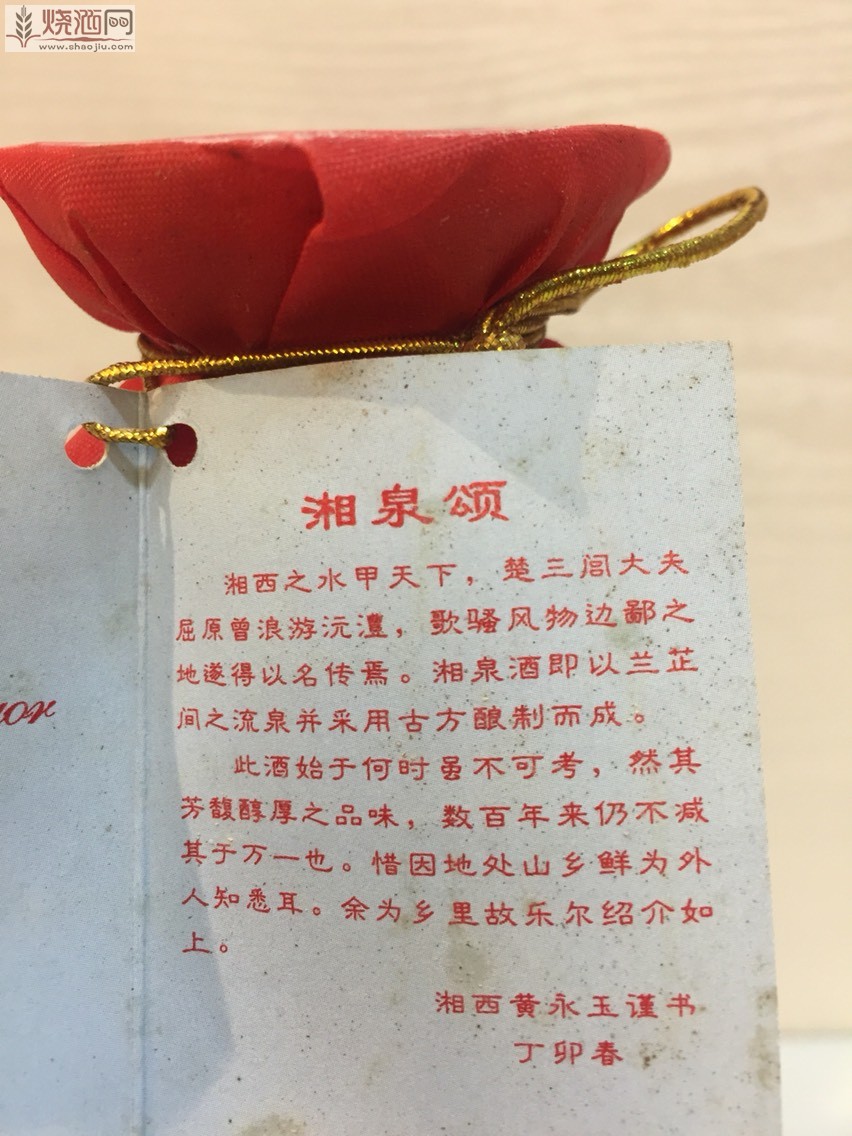 烧酒网
www.shaojiu.com
湘泉颂
湘西之水甲天下，楚三闾大夫
屈原曾浪游沅澧，歌骚风物边鄙之
地遂得以名传焉。湘泉酒即以兰芷
间之流泉并采用古方酿制而成。
此酒始于何时虽不可考，然其
芳馥醇厚之品味，数百年来仍不减
其于万一也。惜因地处山乡鲜为外
人知悉耳。余为乡里故乐尔绍介如
上。
湘西黄永玉谨书
丁卯春